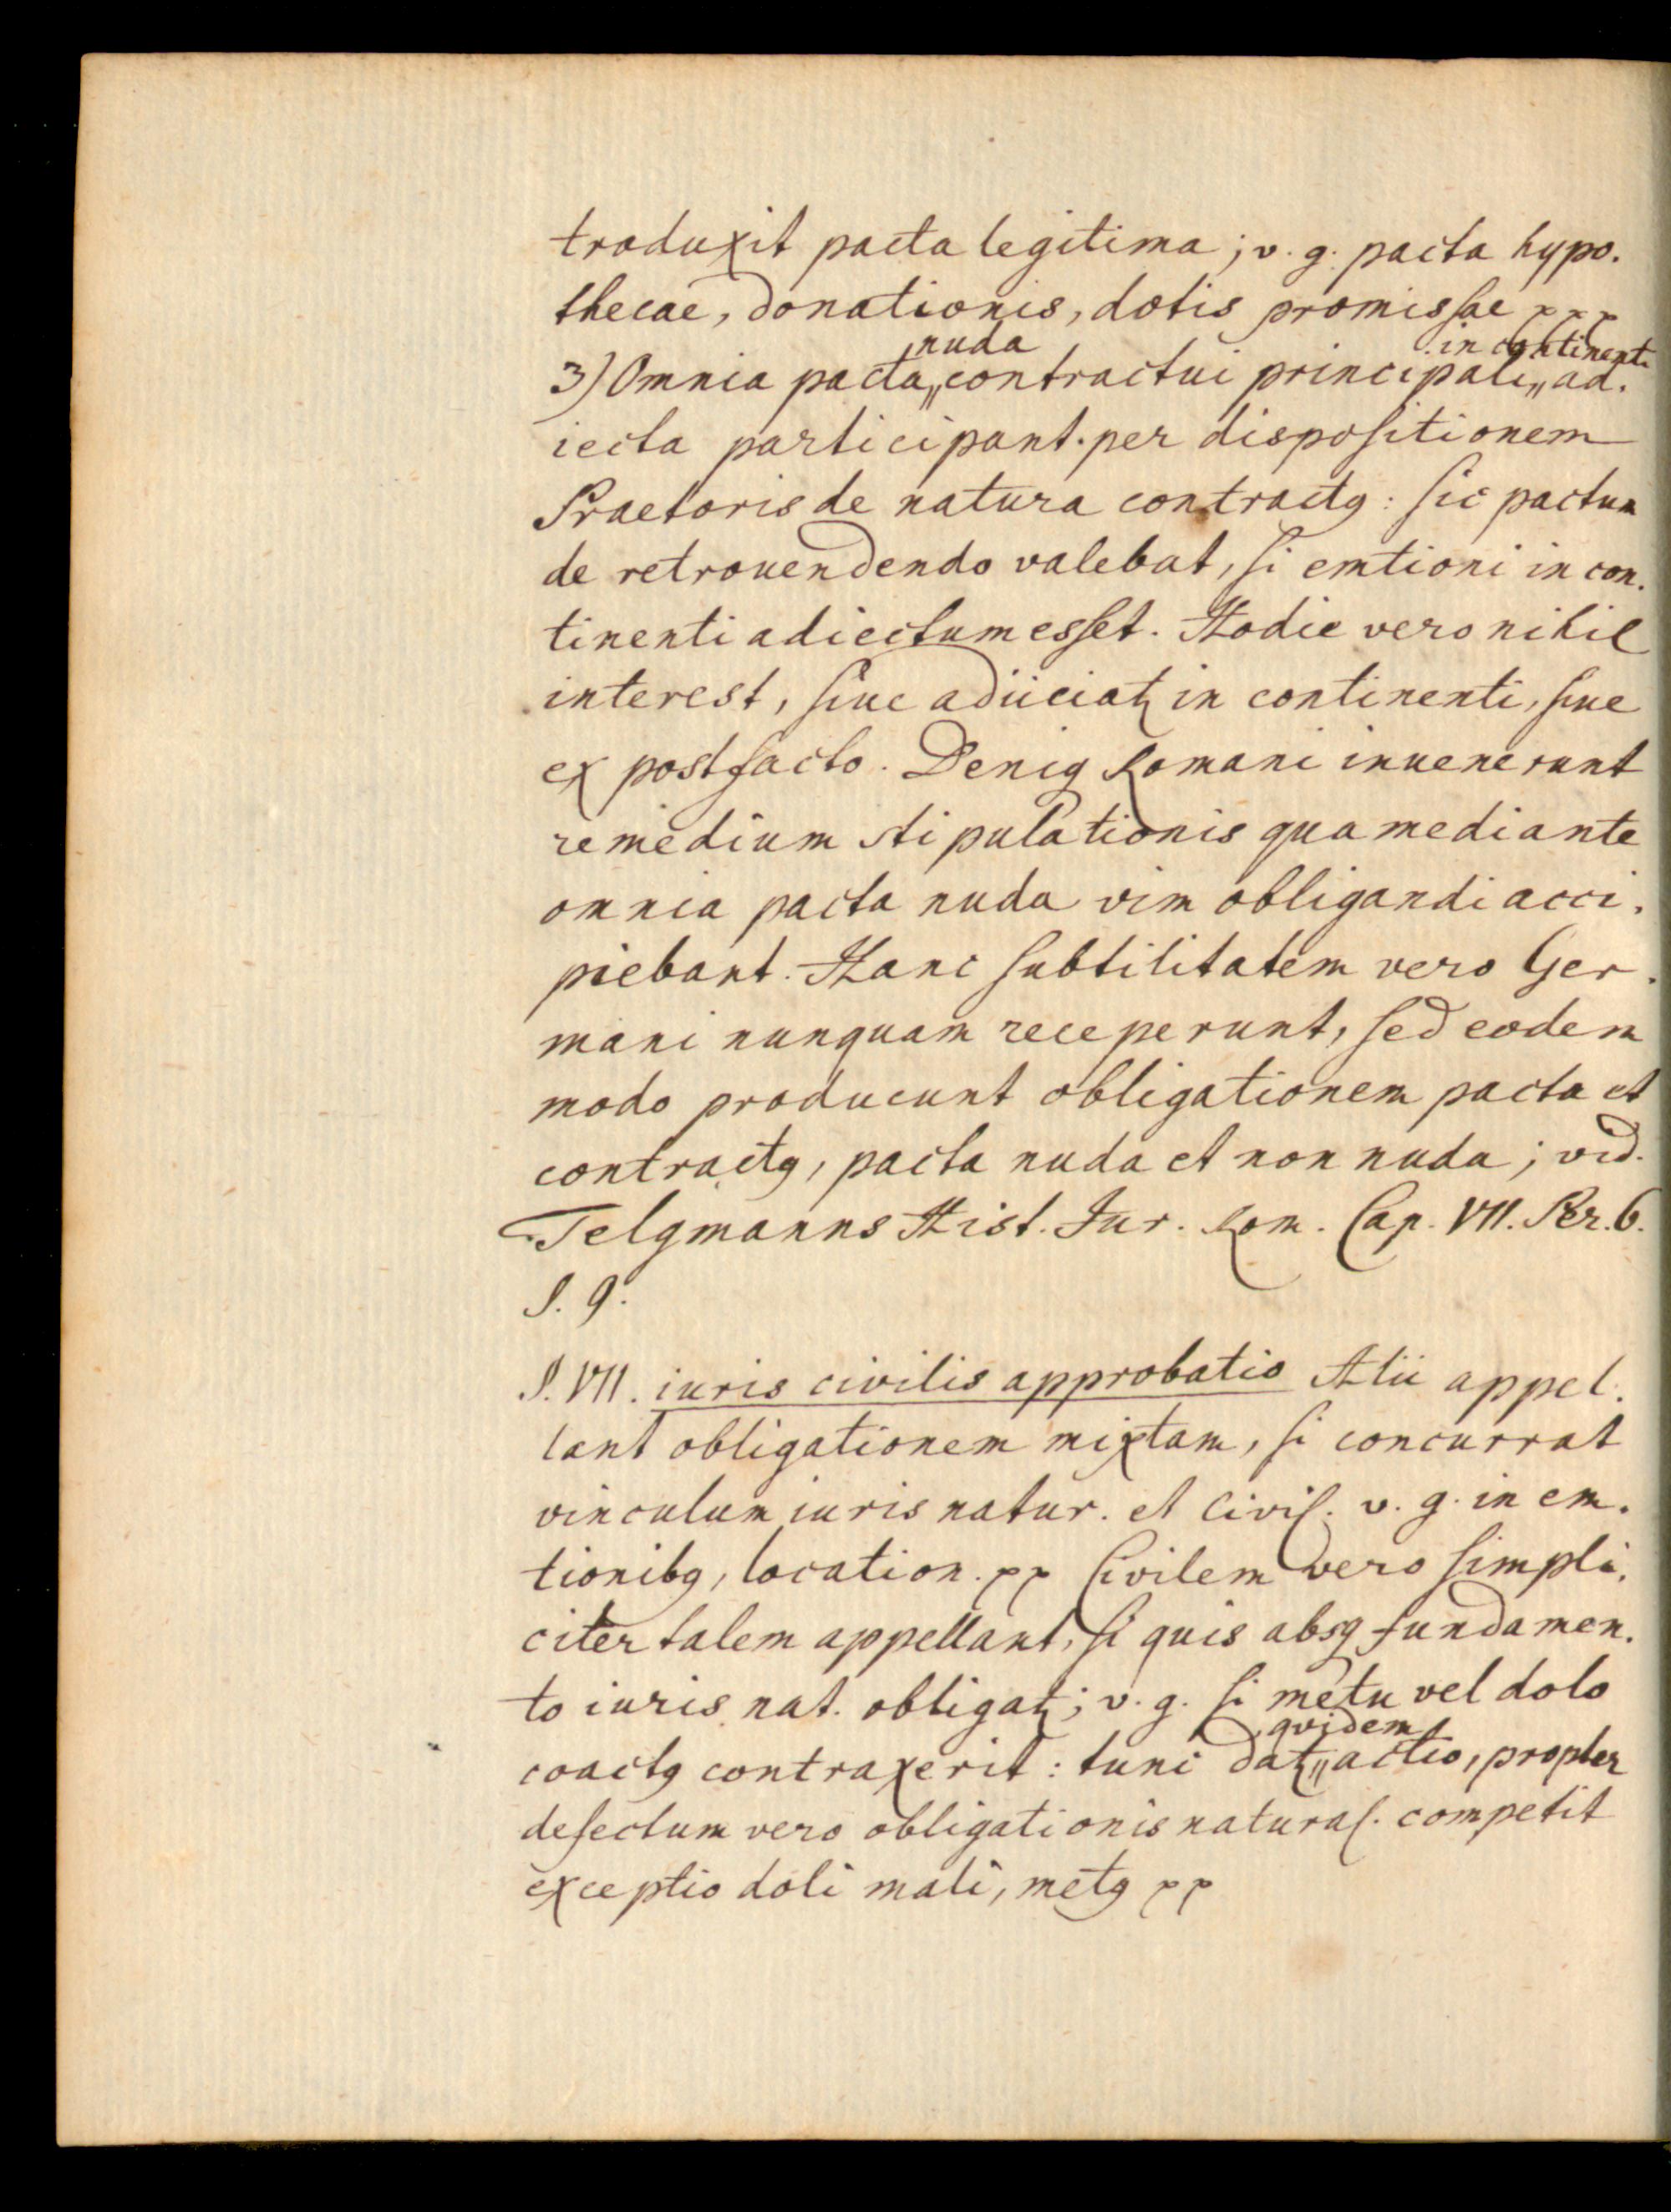 traduxit pacta legitima; v. g. pacta hypo.
thecae, donationis, dotis promissae ppp
nuda in continenti
3) Omnia pacta„ contractui principali„ ad.
iecta participant. per dispositionem
Praetoris de natura contractꝰ: sic pactum
de retrouendendo valebat, si emtioni in con.
tinenti adiectum esset. Hodie vero nihil
interest, siue adiiciatꝛ in continenti, siue
ex postfacto. Deniq Romani inuenerunt
remedium stipulationis qua mediante
omnia pacta nuda vim obligandi acci.
piebant. Hanc subtilitatem vero Ger.
mani nunquam receperunt, sed eodem
modo producunt obligationem pacta et
contractꝰ, pacta nuda et non nuda; vid.
Telgmanns Hist. Jur. Rom. Cap. VII. Per. 6.
§. 9.
§. VII. iuris civilis approbatio Alii appel.
lant obligationem mixtam, si concurrat
vinculum iuris natur. et civil. v. g. in em.
tionibꝰ, location. pp Civilem vero simpli.
citer talem appellant, si quis absq fundamen.
to iuris nat. obligatꝛ; v. g. si metu vel dolo
quidem
coactꝰ contraxerit: tunc datꝛ„ actio, propter
defectum vero obligationis natural. competit
exceptio doli mali, metꝰ pp